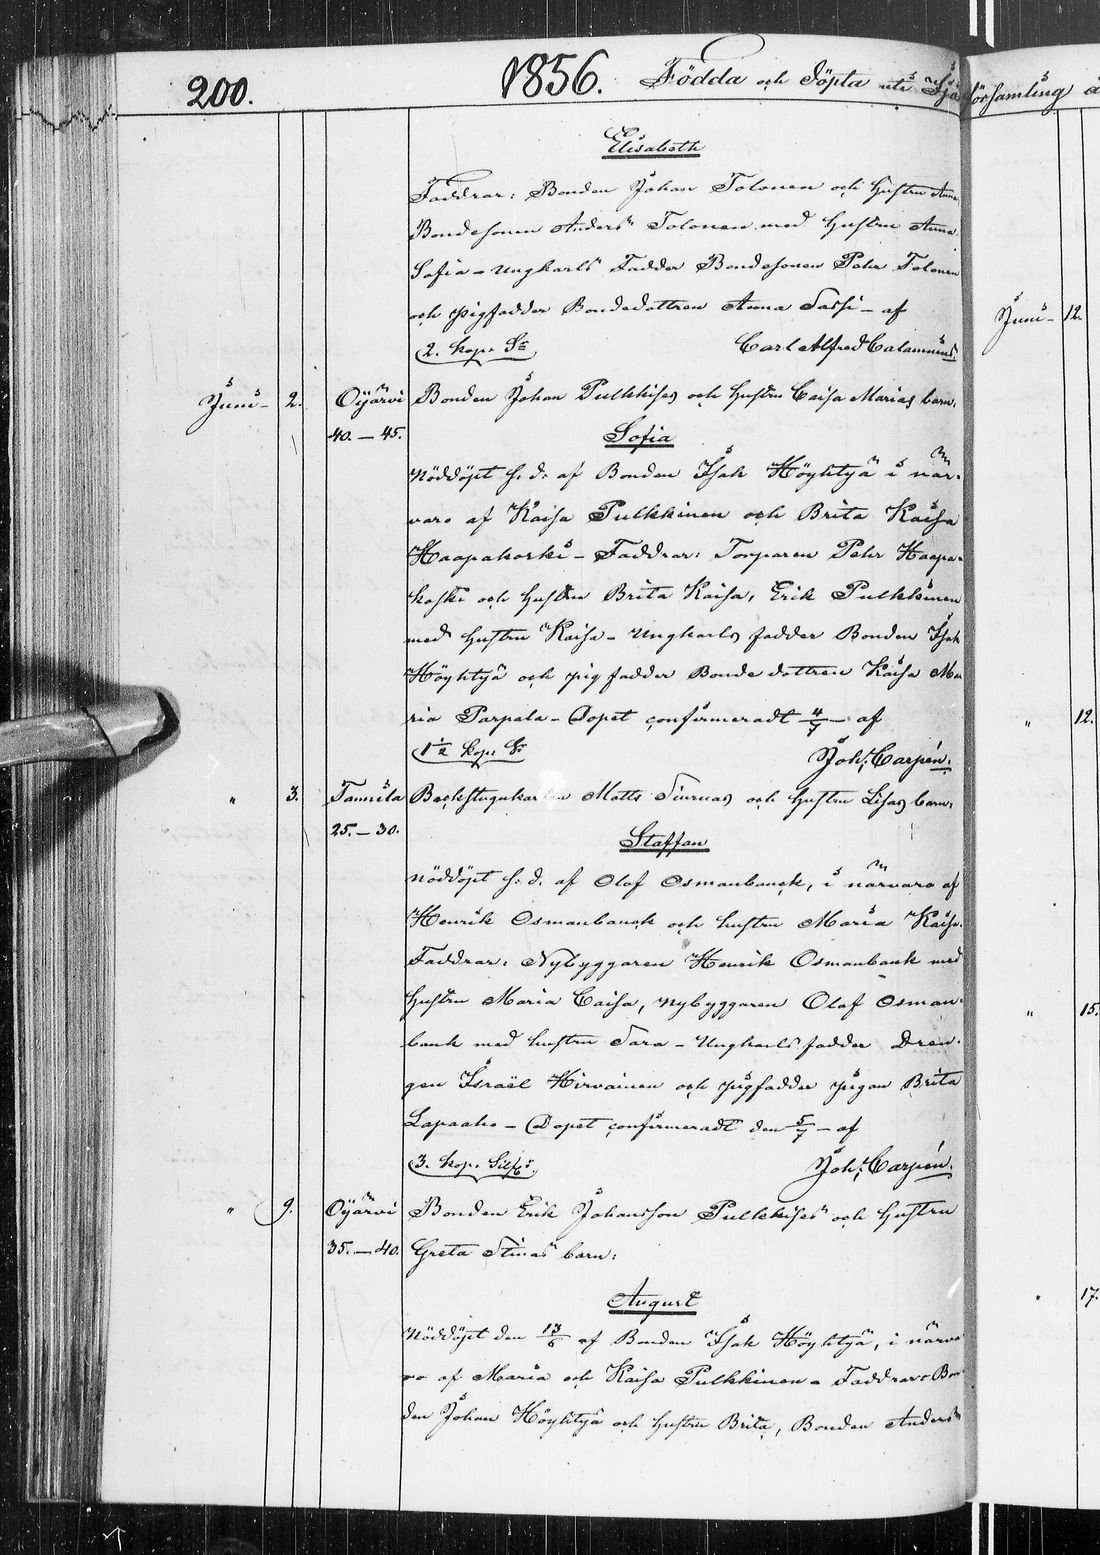 200. 1856. Födda och döpta uti församling å
Elisabeth
Faddrar: Bonden Johan Tolonen och hustru Anna
Bondesonen Anders Tolonen med hustru Anna
Sofia – Ungkarls Fadder Bondesonen Pehr Tolonen
och pigfadder Bondedottren Anna Sassi – af
2. kop. Sr Carl Alfred Calamnius
Juni – 2. Oijärvi Bonden Johan Pulkkises och hustru Caisa Marias barn:
40. – 45. Sofia
Nöddöpt s. d. af Bonden Isak Höyhtyä i när-
varo af Kaisa Pulkkinen och Brita Kaisa
Haapakoski – Faddrar: Torparen Pehr Haapa-
koski och hustru Brita Kaisa, Erik Pulkkinen
med hustru Kaisa – Ungkarls fadder Bonden Isak
Höyhtyä och pigfadder Bonde dottren Kaisa Ma
ria Parpala – Dopet confirmeradt 4/7 – af
1 1/2 kop. Sr Joh. Carpén.
" 3. Tannila Backstugukarlen Matts Siurnas och hustru Lisas barn:
25. – 30. Staffan
nöddöpt s. d. af Olof Osmanbanck, i närvaro af
Henrik Osmanbanck och hustru Maria Kaisa.
Faddrar: Nybyggaren Henrik Osmanbank med
hustru Maria Caisa, nybyggaren Olof Osman-
bank med hustru Sara – Ungkarls fadder Dren-
gen Israël Hirvainen och pigfadder pigan Brita
Lapaaho – Dopet confirmeradt den 5/7 – af
3. kop. Silfr. Joh. Carpén.
" 9. Oijärvi Bonden Erik Johansson Pulkkises och hustru
35. – 40. Greta Stinas barn:
August
Nöddöpt den 13/6 af Bonden Isak Höyhtyä, i närva
ro af Maria och Kaisa Pulkkinen – Faddrar: Bon
den Johan Höyhtyä och hustru Brita, Bonden Anders
Juni – 12.
" 12.
" 15.
" 17.